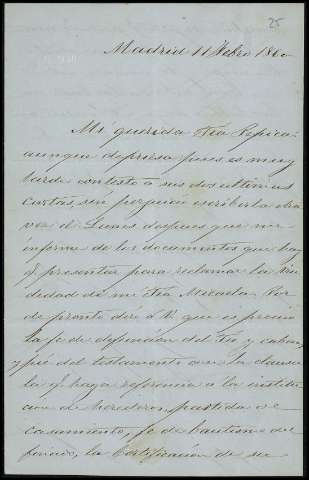 25
Madrid 11 Febro 1860
Mi querida Tia Pepica:
aunque deprisa pues es muy
tarde contesto á sus dos ultimas
cartas, sin perjuicio escribirla otra
vez el Lunes despues que me
informe de los documentos que hay
q. presentar para reclamar la viu
dedad de mi Tia Micaela. Por
de pronto diré á V. que es preciso
la fe de defuncion del Tio y cabeza
y pié del testamento con la clausu
la q. haga referencia á la institu
cion de herederos, partida de
casamiento, fe de bautismo del
la Certificacion de